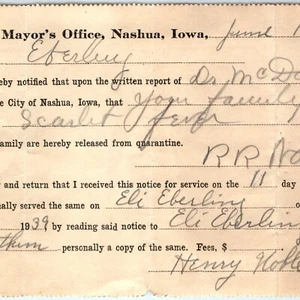 Mayor's Office, Nashua, Iowa, June 1
Eberling
eby notified that upon the written report of Dr. McD
e City of Nashua, Iowa, that your family
Scarlet fever
amily are hereby released from quarantine.
R R
y and return that I received this notice for service on the 11 day
nally served the same on Eli Eberling
1939 by reading said notice to Eli Eberlin
personally a copy of the same. Fees, $
Henry